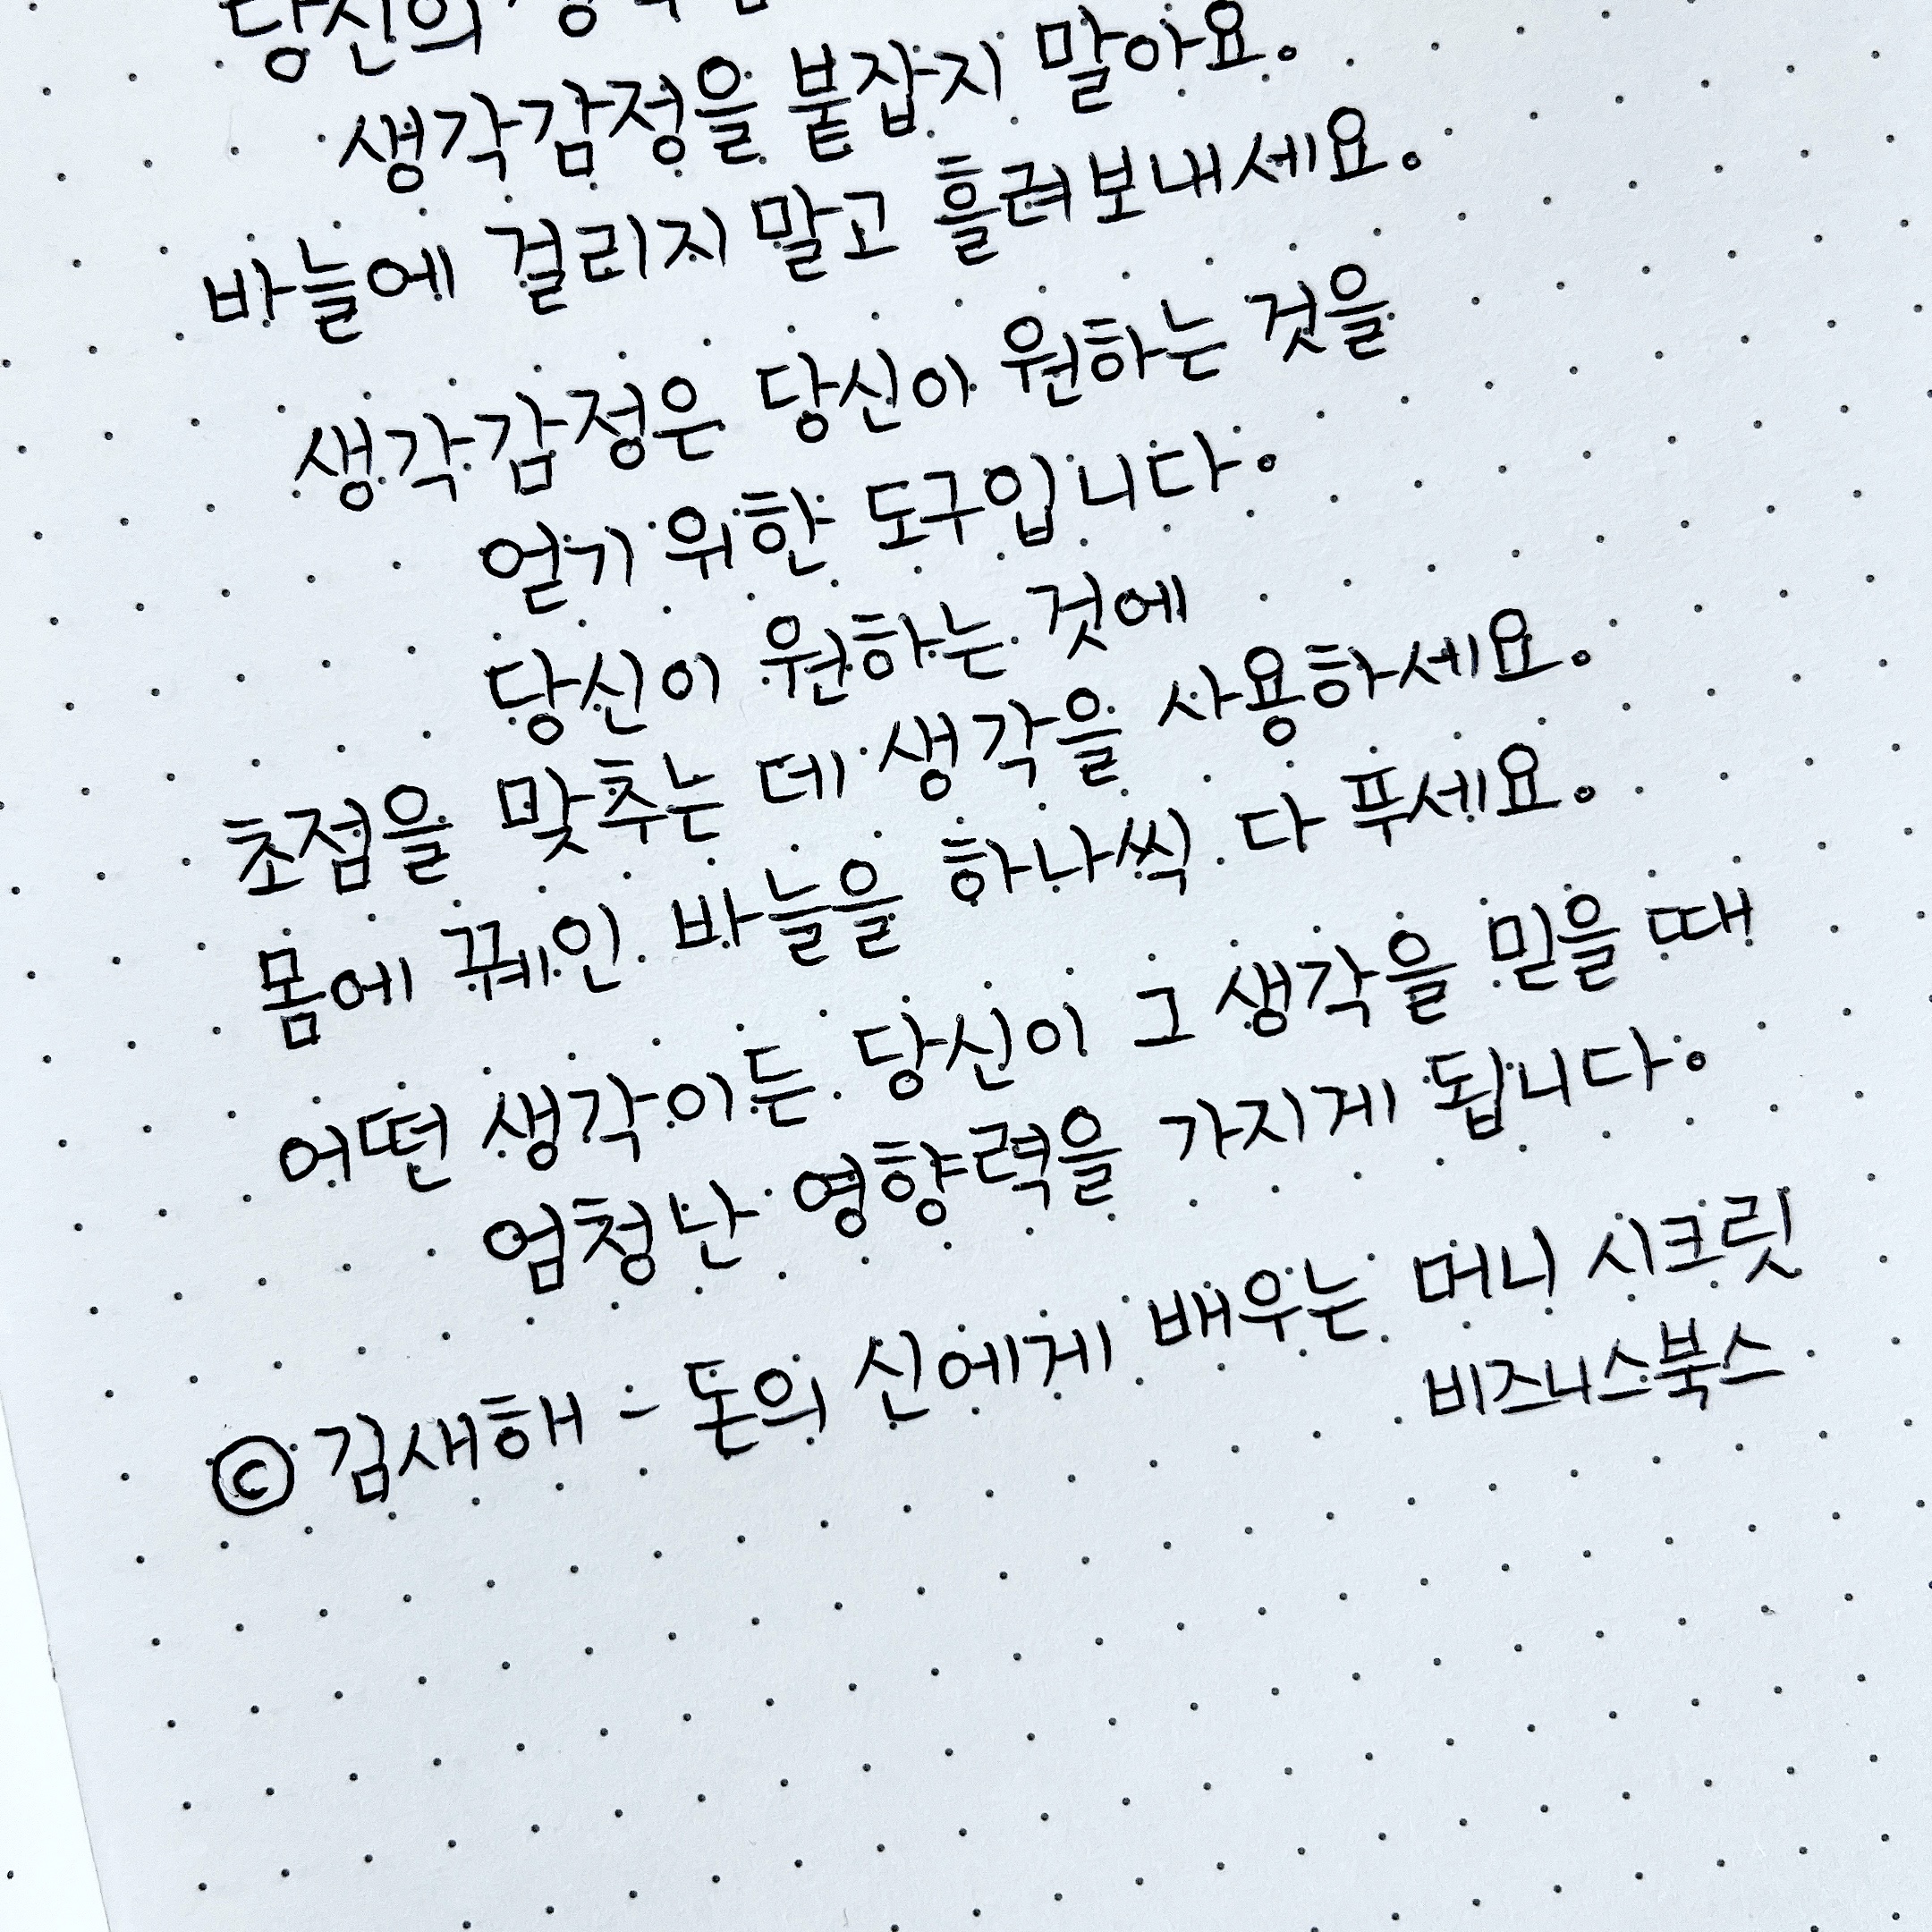 당신의
생각감정을 붙잡지 말아요.
바늘에 걸리지 말고 흘려보내세요.
생각감정은 당신이 원하는 것을
얻기 위한 도구입니다.
당신이 원하는 것에
초점을 맞추는 데 생각을 사용하세요.
몸에 꿰인 바늘을 하나씩 다 푸세요.
어떤 생각이든 당신이 그 생각을 믿을 때
엄청난 영향력을 가지게 됩니다.
© 김새해 - 돈의 신에게 배우는 머니 시크릿
비즈니스북스